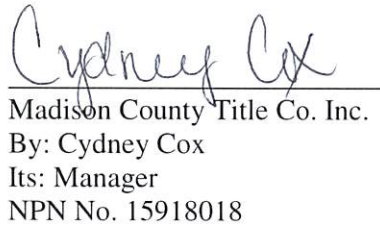 Cydney Cox
Madison County Title Co. Inc.
By: Cydney Cox
Its: Manager
NPN No. 15918018